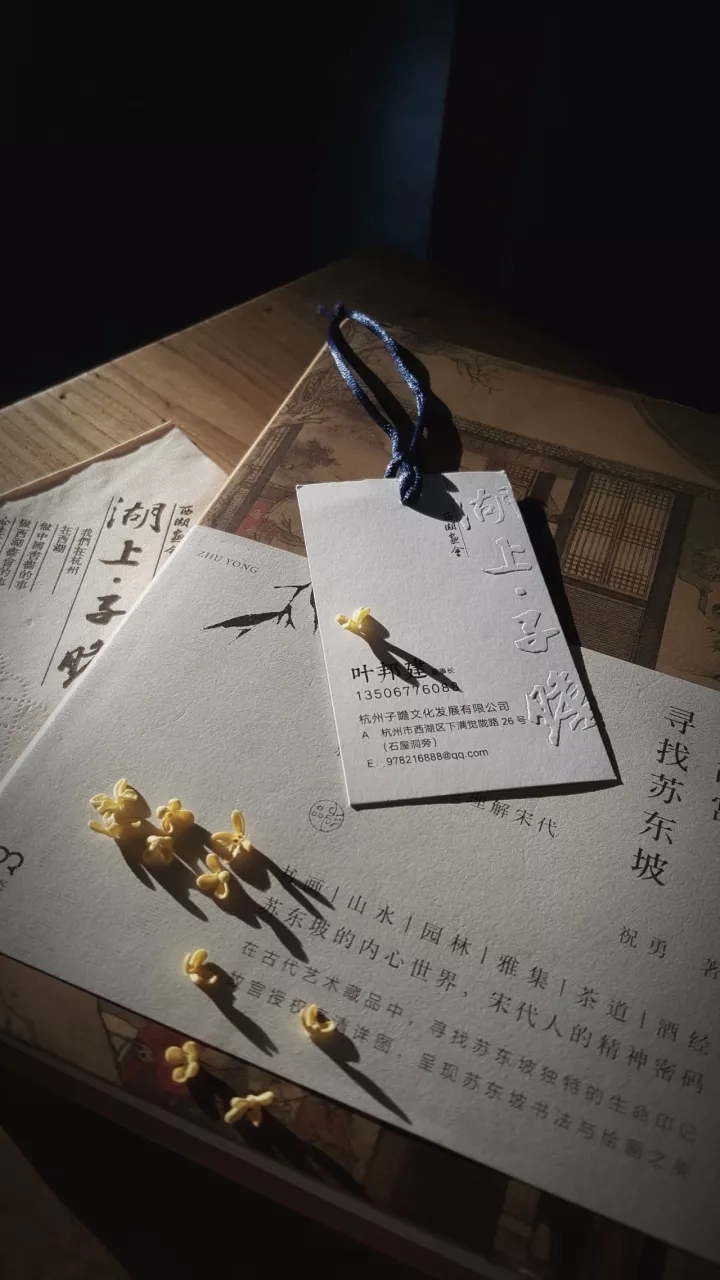 西湖画会
湖上·子瞻
叶邦建
董事长
杭州子瞻文化发展有限公司
A 杭州市西湖区下满觉陇路 26 号
（石屋洞旁）
E 978216888@qq.com
湖上·子
我們在杭州
在西湖
做中國書畫的事
ZHU YONG
寻找苏东坡
祝勇 著
理解宋代
书画 | 山水 | 园林 | 雅集 | 茶道 | 酒经
苏东坡的内心世界，宋代人的精神密码
在古代艺术藏品中，寻找苏东坡独特的生命印记
故宫授权 清详图，呈现苏东坡书法与绘画之美